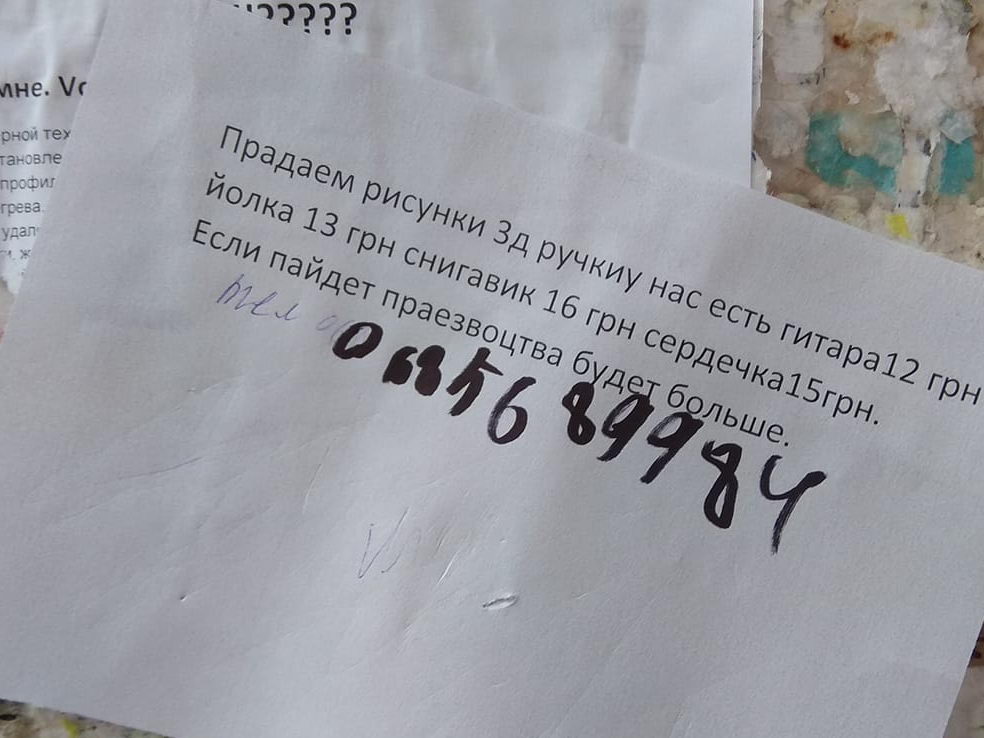 ?????
мне.
рной тех
тановле
профил
грева.
удал
Прадаем рисунки 3д ручкиу нас есть гитара12 грн
йолка 13 грн снигавик 16 грн сердечка15грн.
Если пайдет праезвоцтва будет больше.
тел